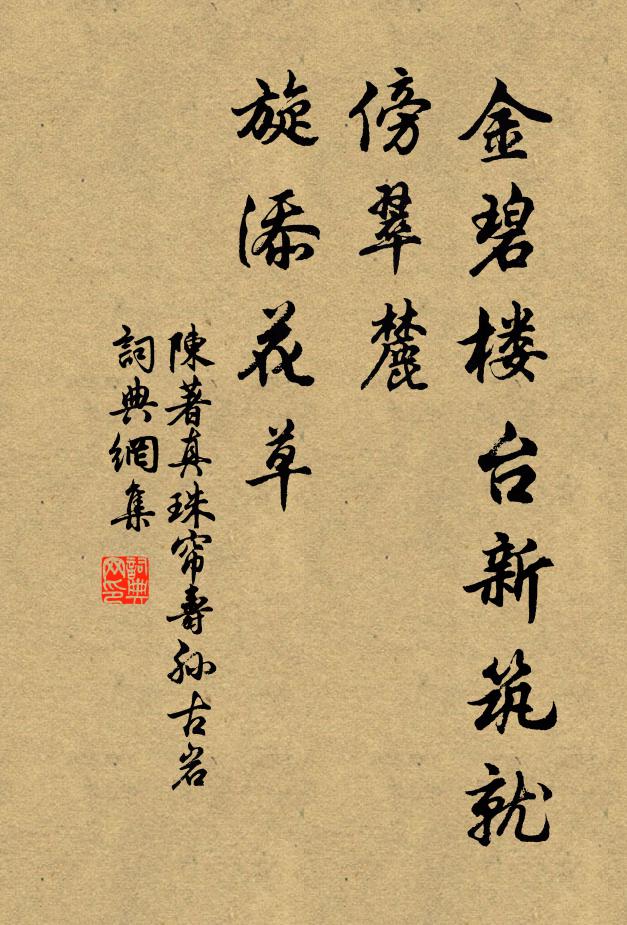 金碧楼台新筑就
傍翠麓
旋添花草
陳著真珠帘壽孙古岩
詞典網集
詞典网印